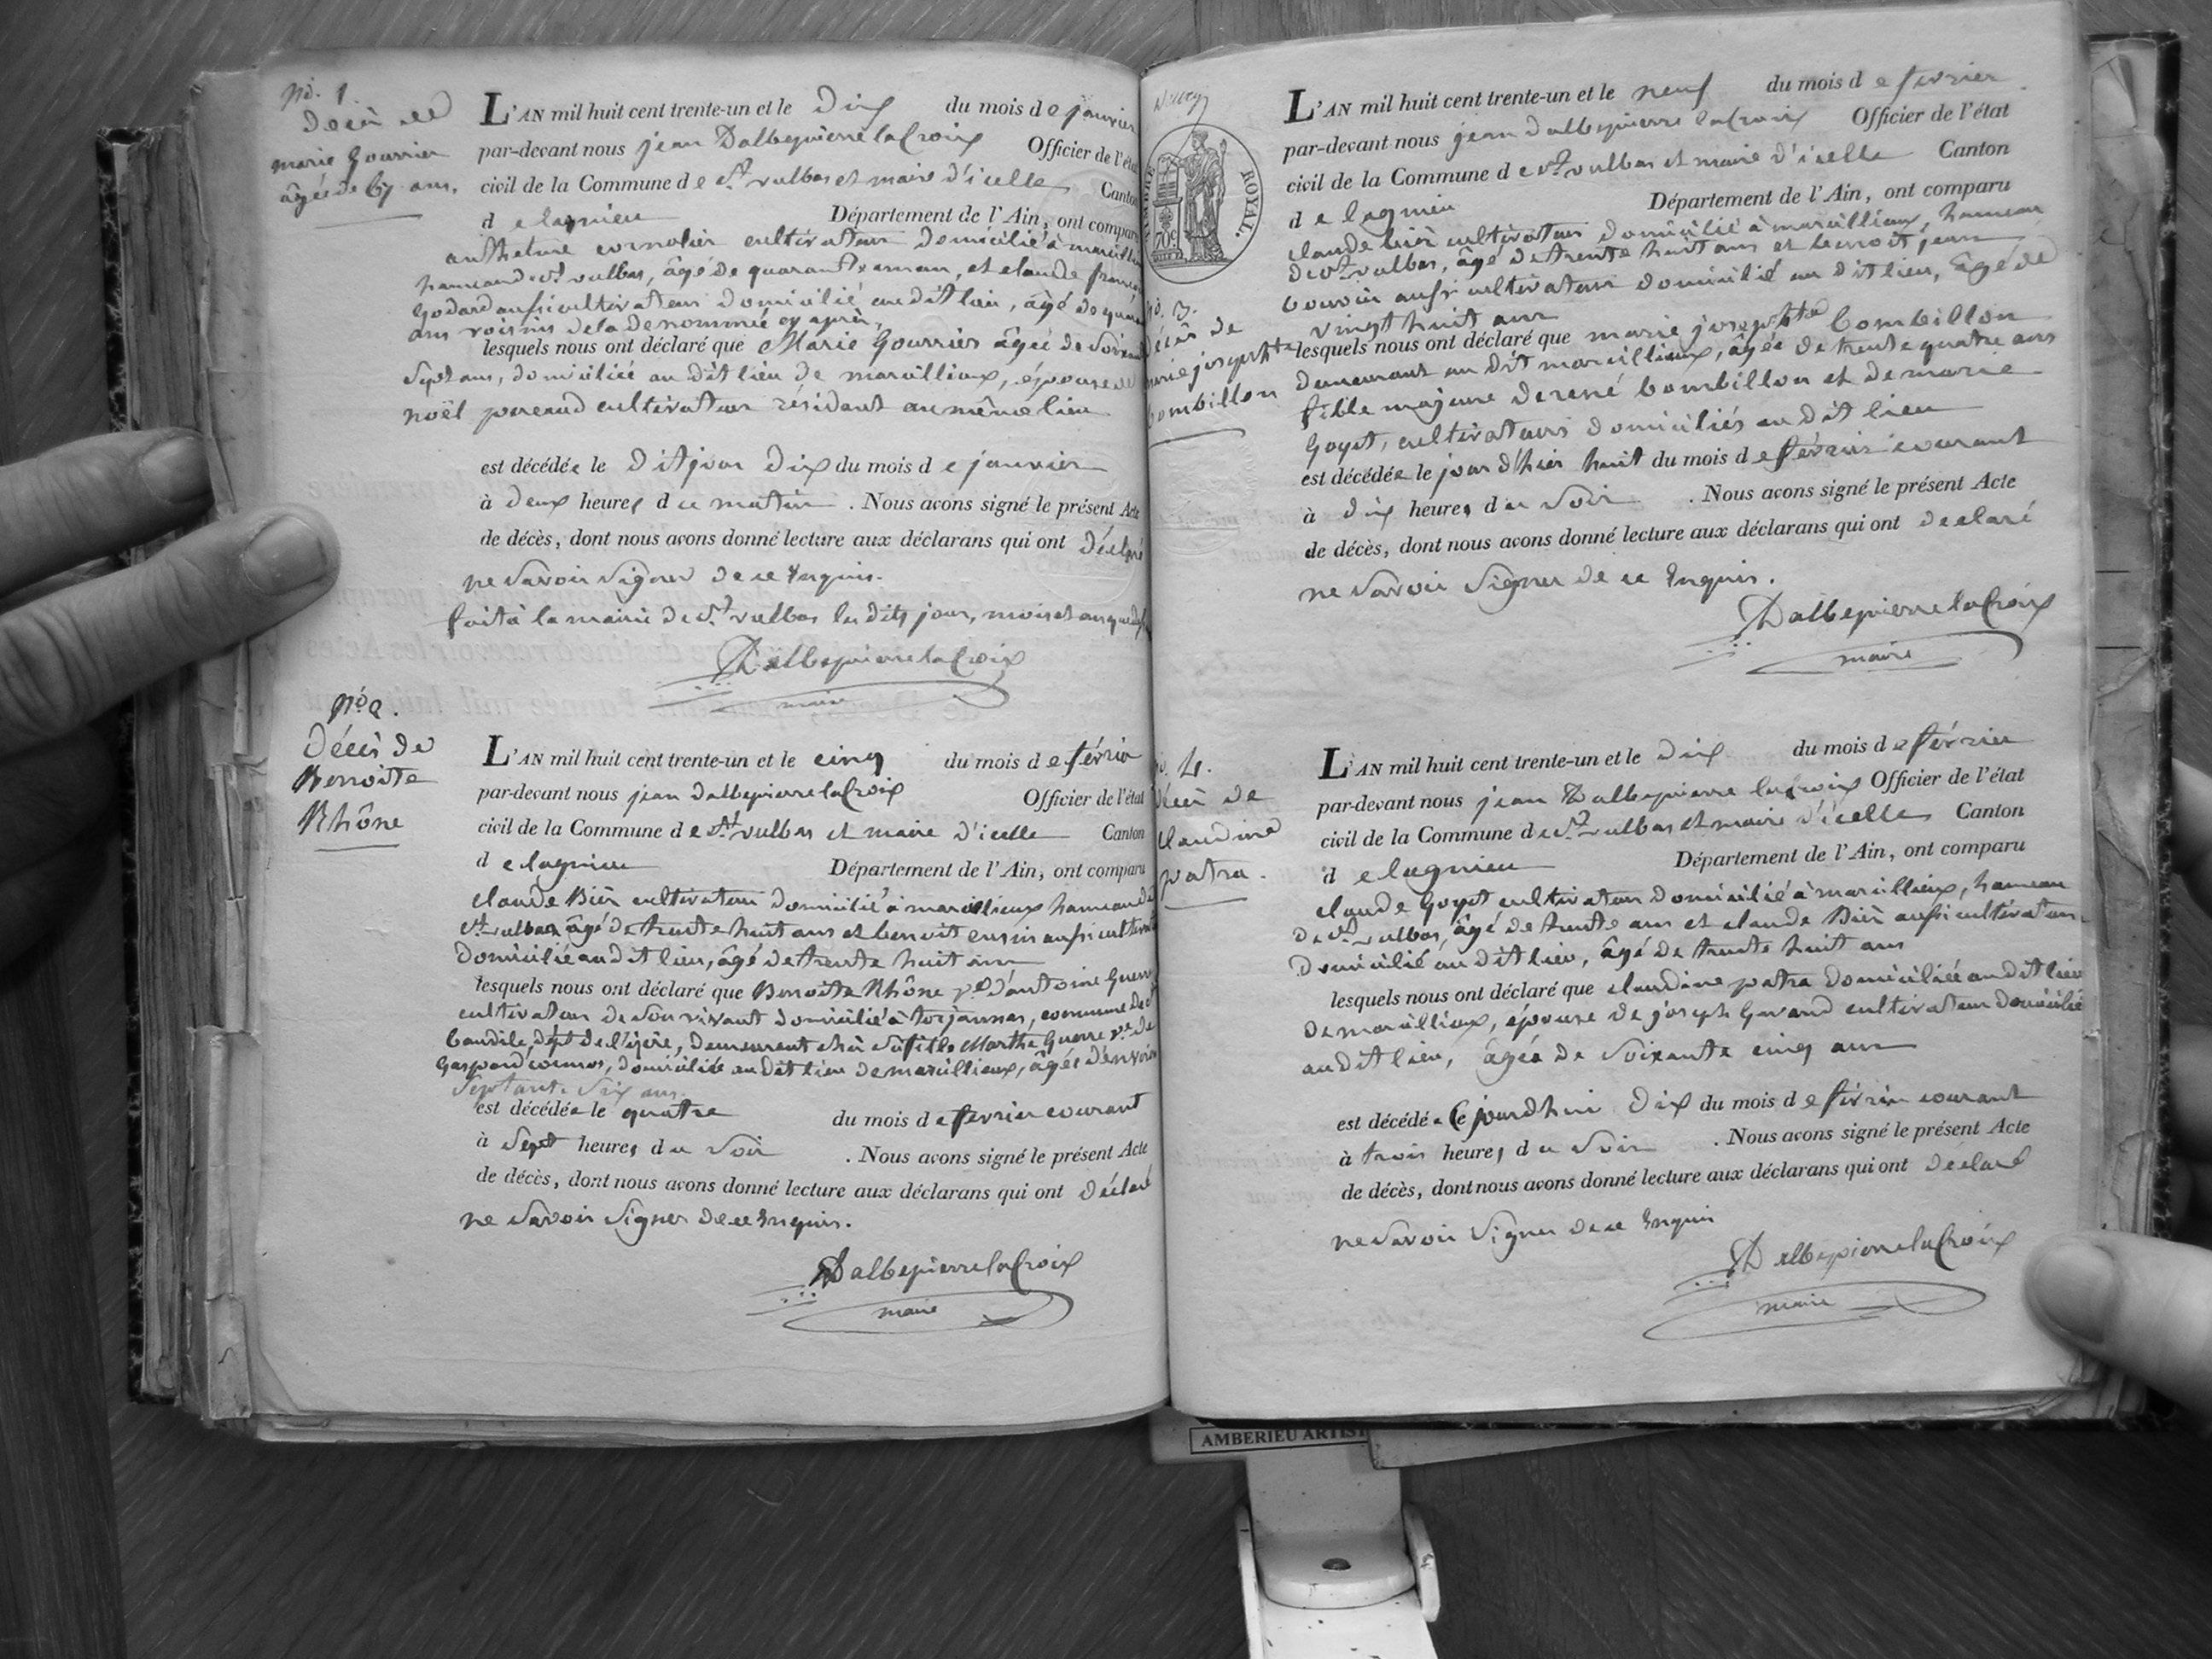 No. 1
Décès de
marie Gourrier
âgée de 67 ans.
L'AN mil huit cent trente-un et le Dix du mois de janvier
par-devant nous jean Dalbepierre laCroix Officier de l'état
civil de la Commune de St vulbas et maire d'icelle Canton
de lagnieu Département de l'Ain, ont comparu
anthelme cornolier cultivateur domicilié à marcillieux
hameau de St vulbas, âgé de quarante et claude françois
Godard aussi cultivateur domicilié au dit lieu, âgé de
ans voisins de la dénommée cy après,
lesquels nous ont déclaré que Marie Gourrier âgée de Soixante
Sept ans, domiciliée au dit lieu de marcillieux, épouse de
noël cultivateur résidant au même lieu
est décédée le Dit jour Dix du mois de janvier
à deux heures du matin . Nous avons signé le présent Acte
de décès, dont nous avons donné lecture aux déclarans qui ont déclaré
ne Savoir Signer de ce Enquis.
fait à la mairie de St vulbas les dits jour, mois et an que dessus
Dalbepierre laCroix
maire
No. 2.
Décès de
Benoite
Rhône
L'AN mil huit cent trente-un et le cinq du mois de février
par-devant nous jean Dalbepierre laCroix Officier de l'état
civil de la Commune de St vulbas et maire d'icelle Canton
de lagnieu Département de l'Ain, ont comparu
claude Bier cultivateur domicilié à marcillieux hameau de
St vulbas âgé de trente huit ans et benoit cusin aussi cultivateur
domicilié au dit lieu, âgé de trente huit ans
lesquels nous ont déclaré que Benoite Rhône ve d'antoine Guerre
cultivateur de Son vivant domicilié à torjannas, commune de St
baudile, dépt de l'izère, demeurant chez Sa fille Marthe Guerre ve de
Gaspard domiciliée au dit lieu de marcillieux, âgée d'environ
Septante Six ans.
est décédée le quatre du mois de février courant
à Sept heures du Soir . Nous avons signé le présent Acte
de décès, dont nous avons donné lecture aux déclarans qui ont déclaré
ne Savoir Signer de ce Enquis.
Dalbepierre laCroix
maire
TIMBRE ROYAL.
70c
No. 3.
Décès de
marie josephte
bombillon
L'AN mil huit cent trente-un et le neuf du mois de février
par-devant nous jean dalbepierre laCroix Officier de l'état
civil de la Commune de St vulbas et maire d'icelle Canton
de lagnieu Département de l'Ain, ont comparu
claude bier cultivateur domicilié à marcillieux, hameau
de St vulbas, âgé de trente huit ans et benoit jean
bouvier aussi cultivateur domicilié au dit lieu, âgé de
vingt huit ans
lesquels nous ont déclaré que marie josephte bombillon
demeurant au dit marcillieux, âgée de trente quatre ans
fille majeure de rené bombillon et de marie
Goyet, cultivateurs domiciliés au dit lieu
est décédée le jour d'hier huit du mois de février courant
à dix heures du Soir . Nous avons signé le présent Acte
de décès, dont nous avons donné lecture aux déclarans qui ont déclaré
ne Savoir Signer de ce Enquis.
Dalbepierre laCroix
maire
No. 4.
Décès de
claudine
patra.
L'AN mil huit cent trente-un et le Dix du mois de février
par-devant nous jean Dalbepierre laCroix Officier de l'état
civil de la Commune de St vulbas et maire d'icelle Canton
de lagnieu Département de l'Ain, ont comparu
claude Goyet cultivateur domicilié à marcillieux, hameau
de St vulbas, âgé de trente ans et claude Bier aussi cultivateur
domicilié au dit lieu, âgé de trente huit ans
lesquels nous ont déclaré que claudine patra domiciliée au dit lieu
de marcillieux, épouse de joseph Gurand cultivateur domicilié
au dit lieu, âgée de Soixante cinq ans
est décédée Ce jourdhui Dix du mois de février courant
à trois heures du Soir . Nous avons signé le présent Acte
de décès, dont nous avons donné lecture aux déclarans qui ont déclaré
ne Savoir Signer de ce Enquis
Dalbepierre laCroix
maire
AMBERIEU ARTIST